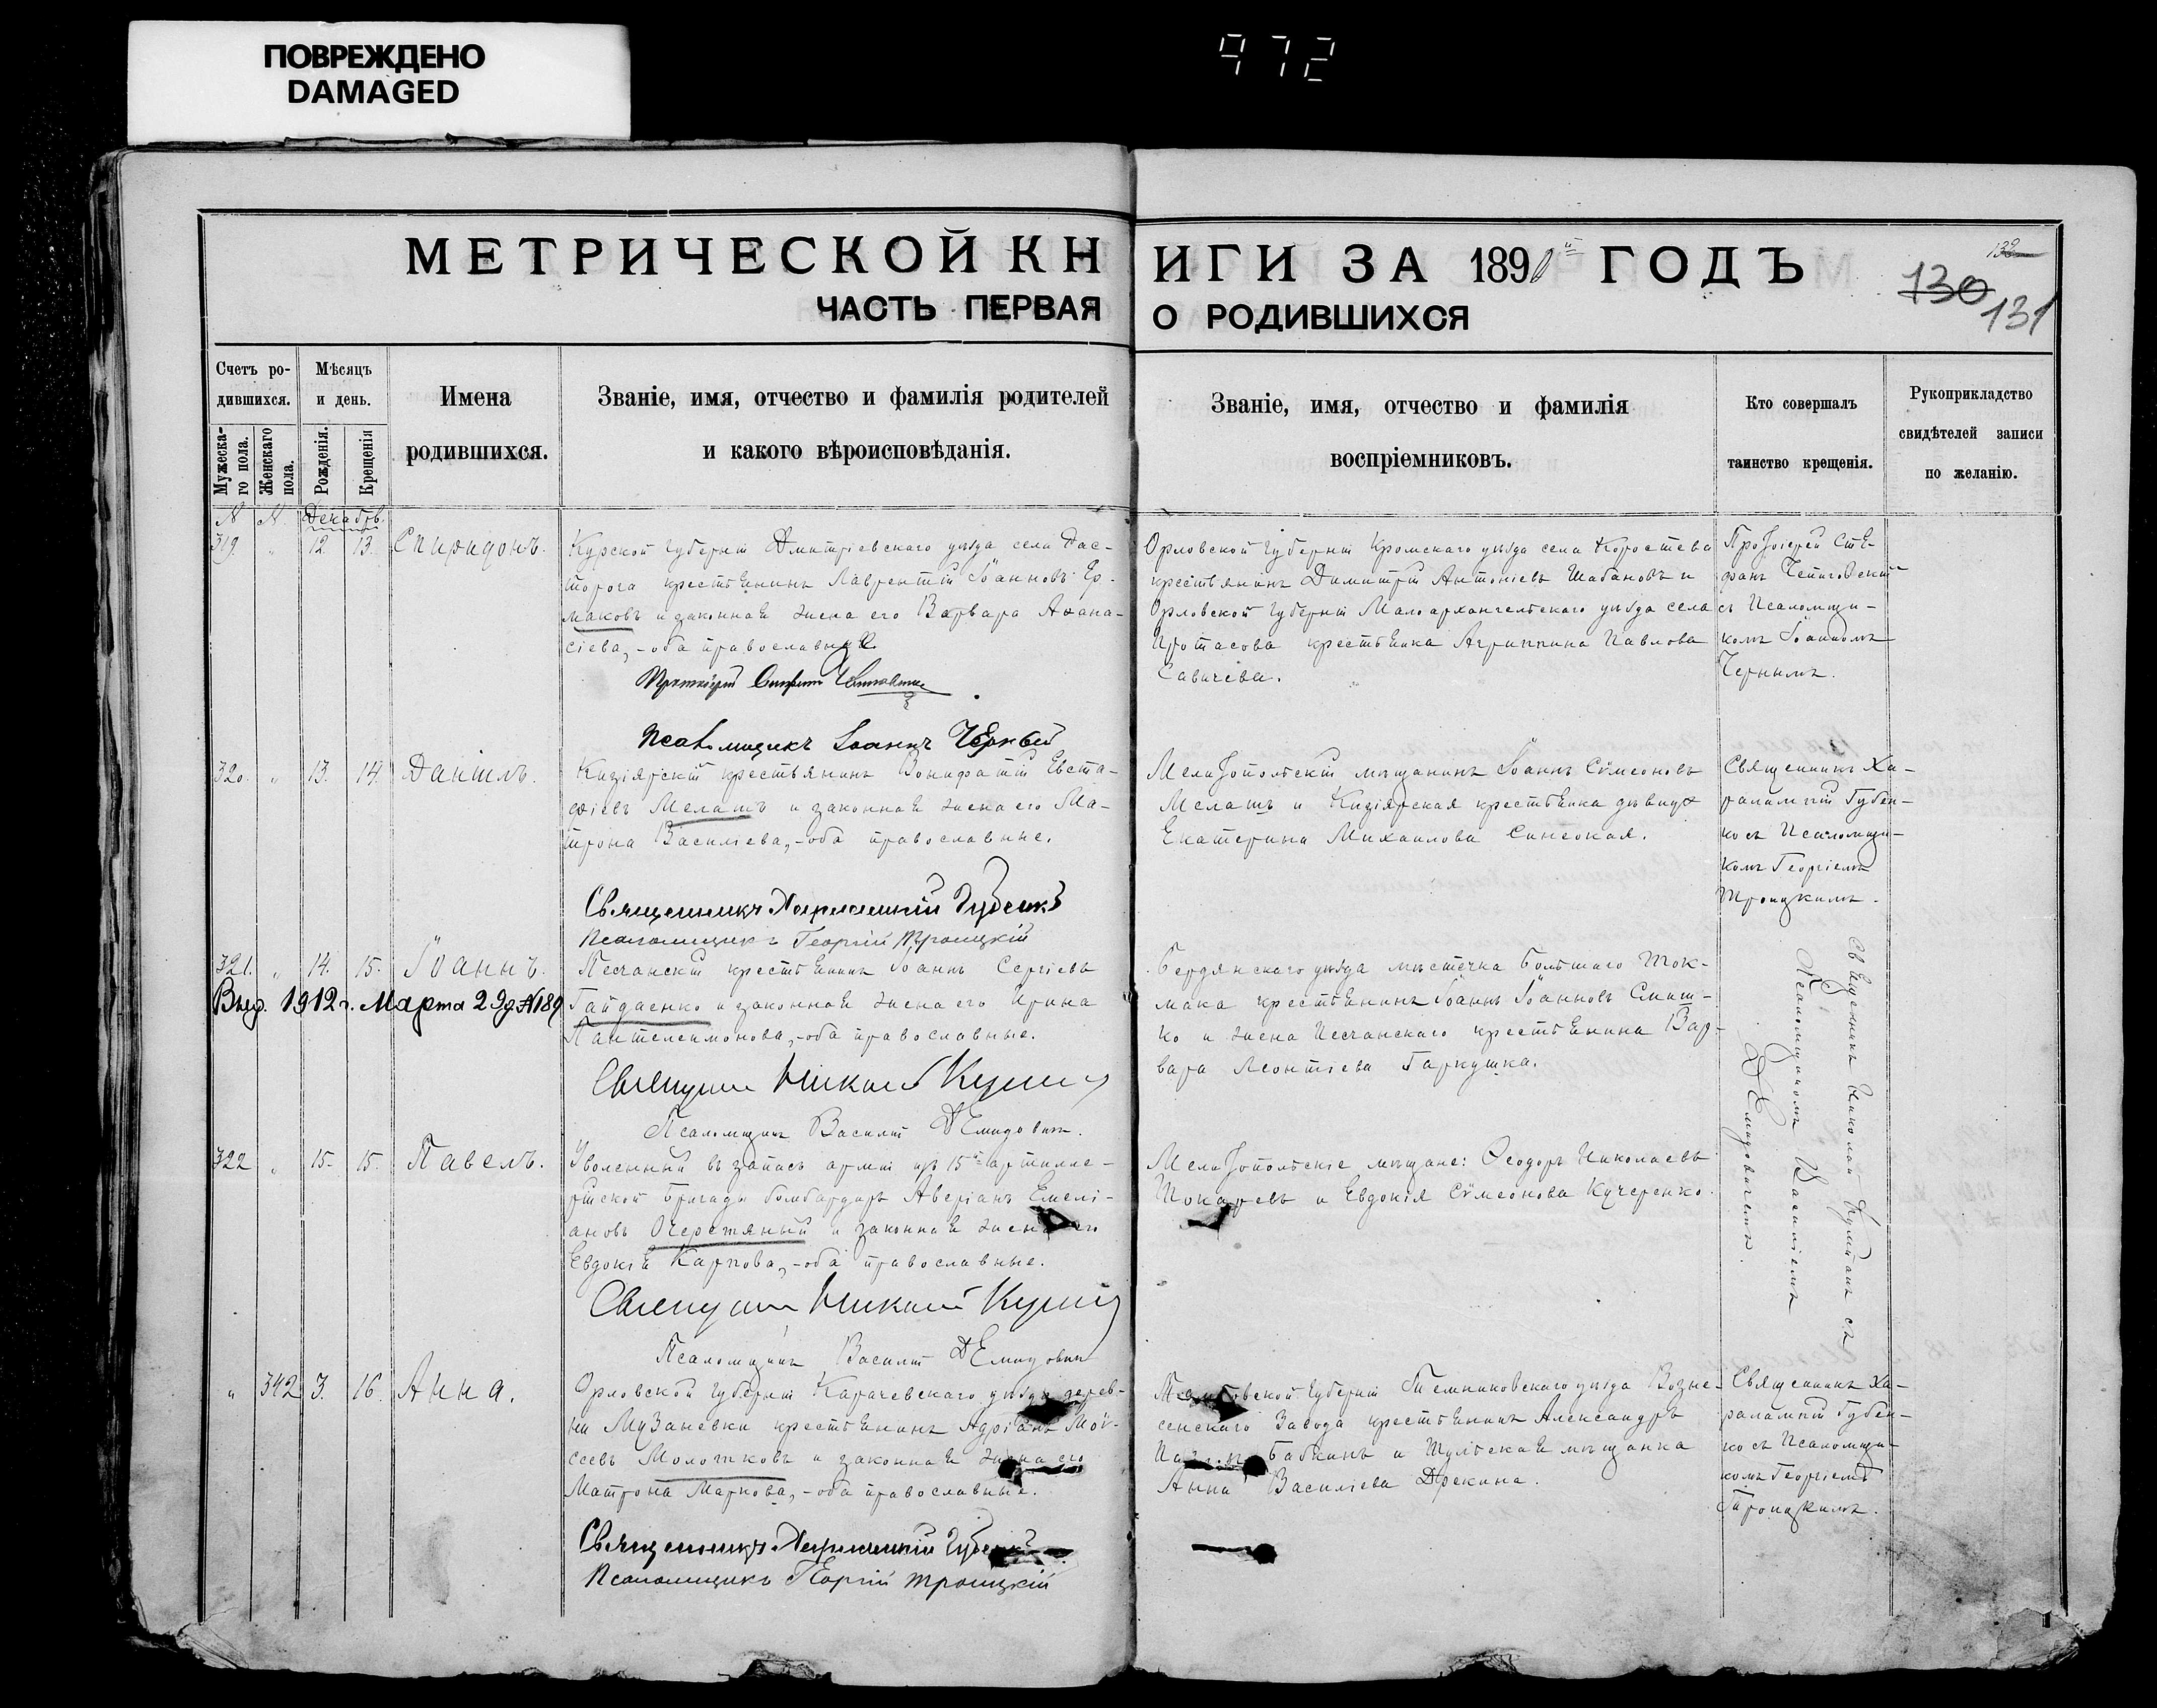 ПОВРЕЖДЕНО
DAMAGED
972
МЕТРИЧЕСКОЙ КНИГИ ЗА 189 ГОДЪ
ЧАСТЬ ПЕРВАЯ О РОДИВШИХСЯ
132
130
131
Счетъ родившихся.
Мужескаго пола.
Женскаго пола.
Мѣсяцъ и день.
Рожденія.
Крещенія
Имена родившихся.
Званіе, имя, отчество и фамилія родителей
и какого вѣроисповѣданія.
Званіе, имя, отчество и фамилія
воспріемниковъ.
Кто совершалъ
таинство крещенія.
Рукоприкладство
свидѣтелей записи
по желанію.
N N. Декабрь.
319 " 12 13. Спиридонъ.
Курской губерніи Дмитріевскаго уѣзда села
крестьянинъ Лаврентій Іоанновъ Ер-
маковъ и законная жена его Варвара Аѳана-
сіева, - оба православные.
Протоіерей Стефанъ
Псаломщикъ Іоаннъ Черный
Орловской губерніи Кромскаго уѣзда села Коростева
крестьянинъ Димитрій Антоніевъ Шабановъ и
Орловской губерніи Малоархангельскаго уѣзда села
Протасова крестьянка Агриппина Павлова
Савичева.
Протоіерей Сте-
фанъ
съ Псаломщи-
комъ Іоанномъ
Чернымъ.
320. " 13. 14. Даніилъ.
Кизіярскій крестьянинъ Вонифатій Евста-
фіевъ Мелашъ и законная жена его Ма-
трона Василіева, - оба православные.
Священникъ Харалампій Губенко
Псаломщикъ Георгій Троицкій
Мелитопольскій мѣщанинъ Іоаннъ Сѵмеоновъ
Мелашъ и Кизіярская крестьянка дѣвица
Екатерина Михаилова Синеокая.
Священникъ Ха-
ралампій Губен-
ко съ Псаломщи-
комъ Георгіемъ
Троицкимъ.
321. " 14. 15. Іоаннъ.
Выд. 1912 г. Марта 29 д. №189
Песчанскій крестьянинъ Іоаннъ Сергіевъ
Гайдаенко и законная жена его Ирина
Пантелеимонова, - оба православные.
Священникъ Николай
Псаломщикъ Василій Демидовичъ.
Бердянскаго уѣзда мѣстечка Большаго Ток-
мака крестьянинъ Іоаннъ Іоанновъ
ко и жена Песчанскаго крестьянина Вар-
вара Леонтіева Гаркушка.
Священникъ Николай съ
Псаломщикомъ Василіемъ
Демидовичемъ.
322 " 15. 15. Павелъ.
Уволенный въ запасъ арміи изъ 15й артилле-
рійской бригады бомбардиръ Аверіанъ Емелі-
ановъ Очеретяный и законная жена его
Евдокія Карпова, - оба православные.
Священникъ Николай
Псаломщикъ Василій Демидовичъ
Мелитопольскіе мѣщане: Ѳеодоръ Николаевъ
Токаревъ и Евдокія Сѵмеонова Кучеренко.
" 342 3. 16. Анна.
Орловской губерніи Карачевскаго уѣзда дерев-
ни Музаневки крестьянинъ Адріанъ Мой-
сеевъ Молотковъ и законная жена его
Матрона Маркова, - оба православные.
Священникъ Харалампій Губенко
Псаломщикъ Георгій Троицкій
Тамбовской губерніи Темниковскаго уѣзда Возне-
сенскаго Завода крестьянинъ Александръ
Бабкинъ и Тульская мѣщанка
Анна Василіева
Священникъ Ха-
ралампій Губен-
ко съ Псаломщи-
комъ Георгіемъ
Троицкимъ.